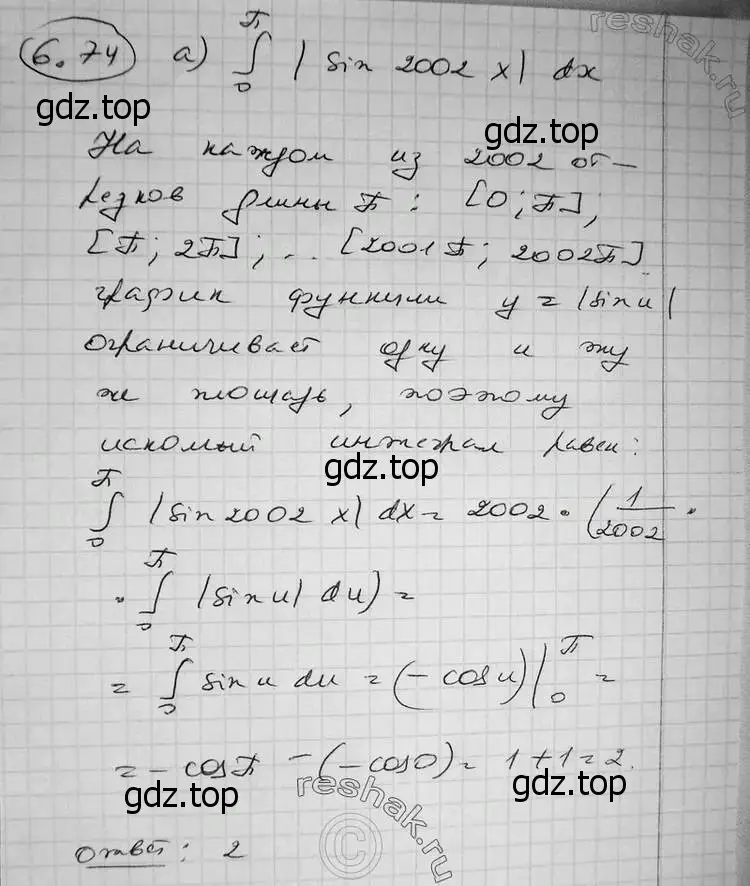 6.74 а) ∫₀^π | sin 2002 x | dx
reshak.ru
gdz.top
gdz.top
На каждом из 2002 от-
резков длины π : [0; π];
[π; 2π]; .. [2001π; 2002π]
график функции y = |sin u|
ограничивает одну и ту
же площадь, поэтому
искомый интеграл равен:
gdz.top
∫₀^π |sin 2002 x| dx = 2002 · (1/2002 ·
· ∫₀^π |sin u| du) =
= ∫₀^π sin u du = (- cos u) |₀^π =
= - cos π - (- cos 0) = 1 + 1 = 2.
gdz.top
gdz.top
reshak.ru
©
Ответ: 2
gdz.top